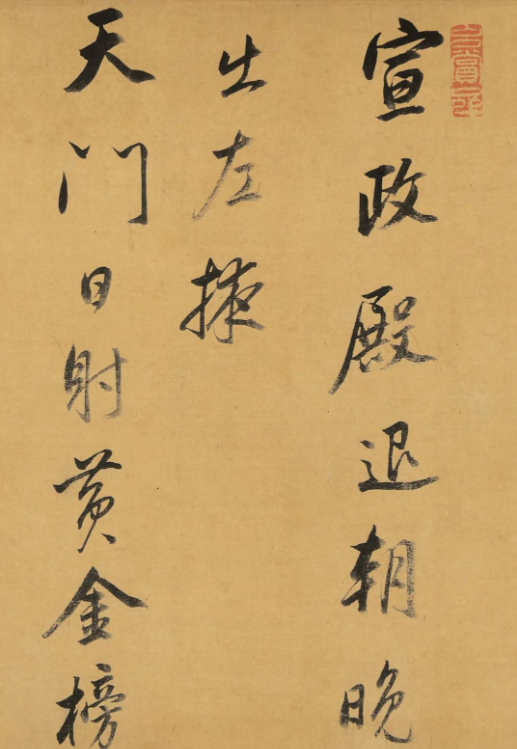 宣政殿退朝晚
出左掖
天門日射黃金榜